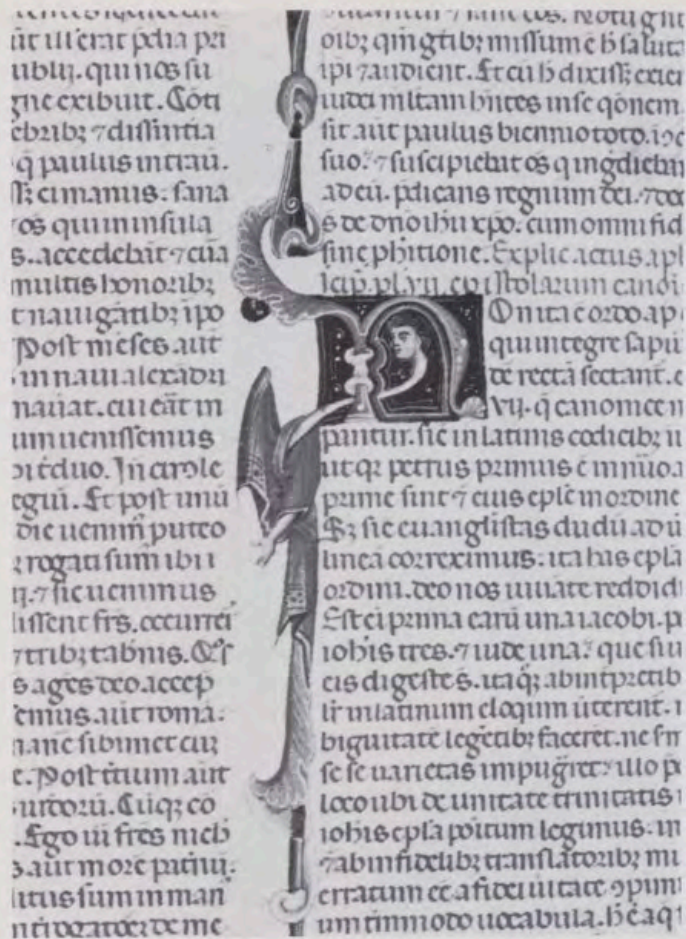 ut ill erat p̄dia pri
ublij. qui nos su
gne exibuit. Cōti
ebribꝫ ⁊ dissintia
q̄ paulus intrau.
ei manus. sana
os qui in insula
s. accedebāt ⁊ cua
multis honoribꝫ
t nauigātibꝫ ipo
Post meses aūt
in naui alexādri
naūat. cui eāt in
um uenissemus
In circle
egiū. Et post unū
die uenim̄ puteo
rogati sum ibi i
⁊ sic uenimus
issent frs. occurrēt
⁊ tribꝫ tabnis.
s ages deo accep
emus aūt roma.
mane sibimet cu
e. Post t̄tium aūt
Cūqꝫ eo
. Ego uī fr̄es nich
aūt more patnu.
itus sum in man
de me
oibꝫ qm gtibꝫ missum ē h saluta
ipi ⁊ audient. Et cū h dixiss exier
iudei mltam hntes inse qōnem.
sit aūt paulus biennio toto. i
suo. ⁊ suscipiebat os q ingdieban
ad eū. p̄dicans regnum dei. ⁊ doc
s de dno ihu xpo. cum omni fid
sine phitione. Explic actus apl
epistolarum canōi
NOn ita ē ordo ap
qui integre sapiū
de rectā sectant. e
vij. q̄ canonice n
pantur. sic in latinis codicibꝫ i
ut qꝛ petrus primus ē in nūo a
prime sint ⁊ eius eplē in ordine
Sꝫ sic euanglistas dudū ad ū
lineā correximus. ita has eplā
ordini. deo nos iuuāte reddid
Est ei prima earū una iacobi. p
iohis tres. ⁊ iude una. que si u
eis digeste s. ita qꝫ ab intp̄retib
lr in latinum eloqum ūterent. n
biguitatē legētibꝫ faceret. ne sm
se se uarietas impugret. illo p
loco ubi de unitate trinitatis
iohis eplā poitum legimus. in
⁊ ab infidelibꝫ translatoribꝫ mi
erratum eē a fidei uitate ꝯpim
um tmmodo uocabula. h ē aq